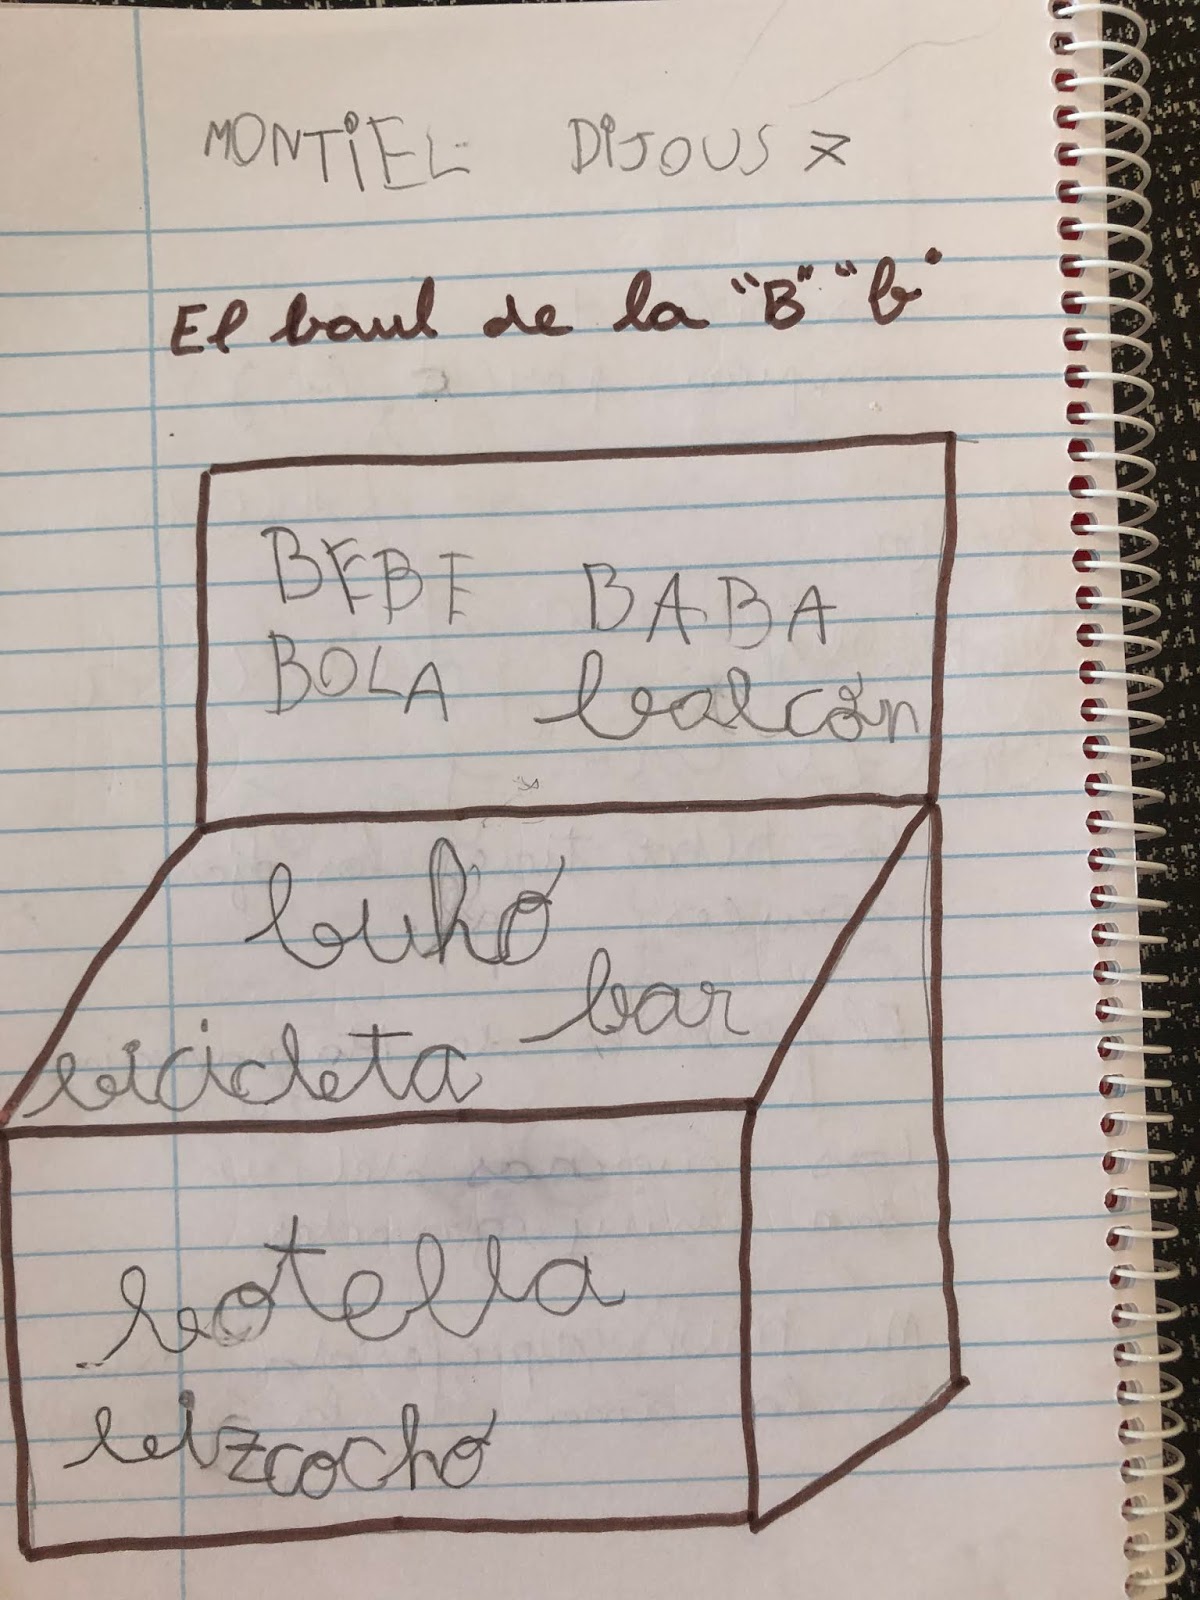 MONTIEL DIJOUS 7
El baul de la "B" "b"
BEBE BABA
BOLA balcón
buho
bar
bicicleta
botella
bizcocho